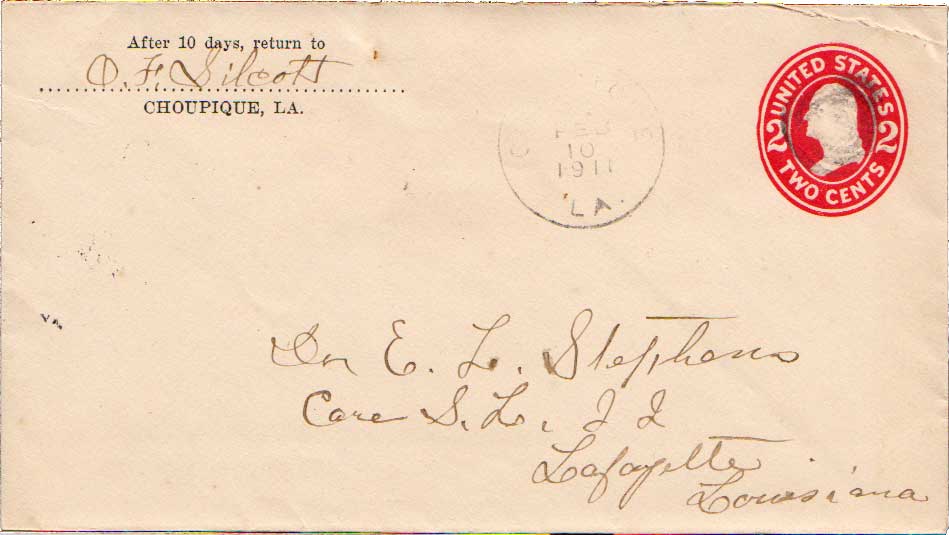 After 10 days, return to
O. F. Silcott
CHOUPIQUE, LA.
FEB
10
1911
LA.
UNITED STATES
2 2
TWO CENTS
Dr E. L. Stephens
Care S. L. I I
Lafayette
Louisiana